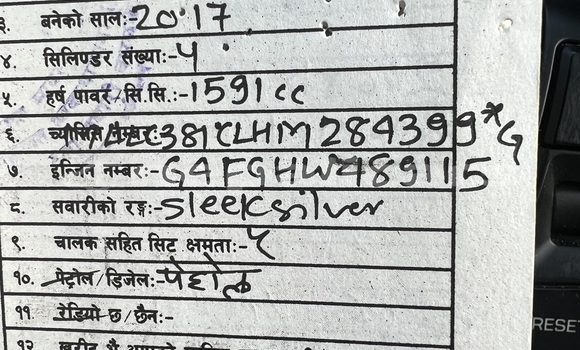 ३. बनेको सालः-2017
४. सिलिण्डर संख्याः-५
५. हर्ष पावर/सि.सि.:-1591 cc
६. च्यासिस नम्बरः-MALC381CLHM284399*G
७. इन्जिन नम्बरः-G4FGHW489115
८. सवारीको रङ्गः-sleeksilver
९. चालक सहित सिट क्षमताः-५
१०. पेट्रोल/डिजेलः-पेट्रोल
११ रेडियो छ/छैनः-
RESET